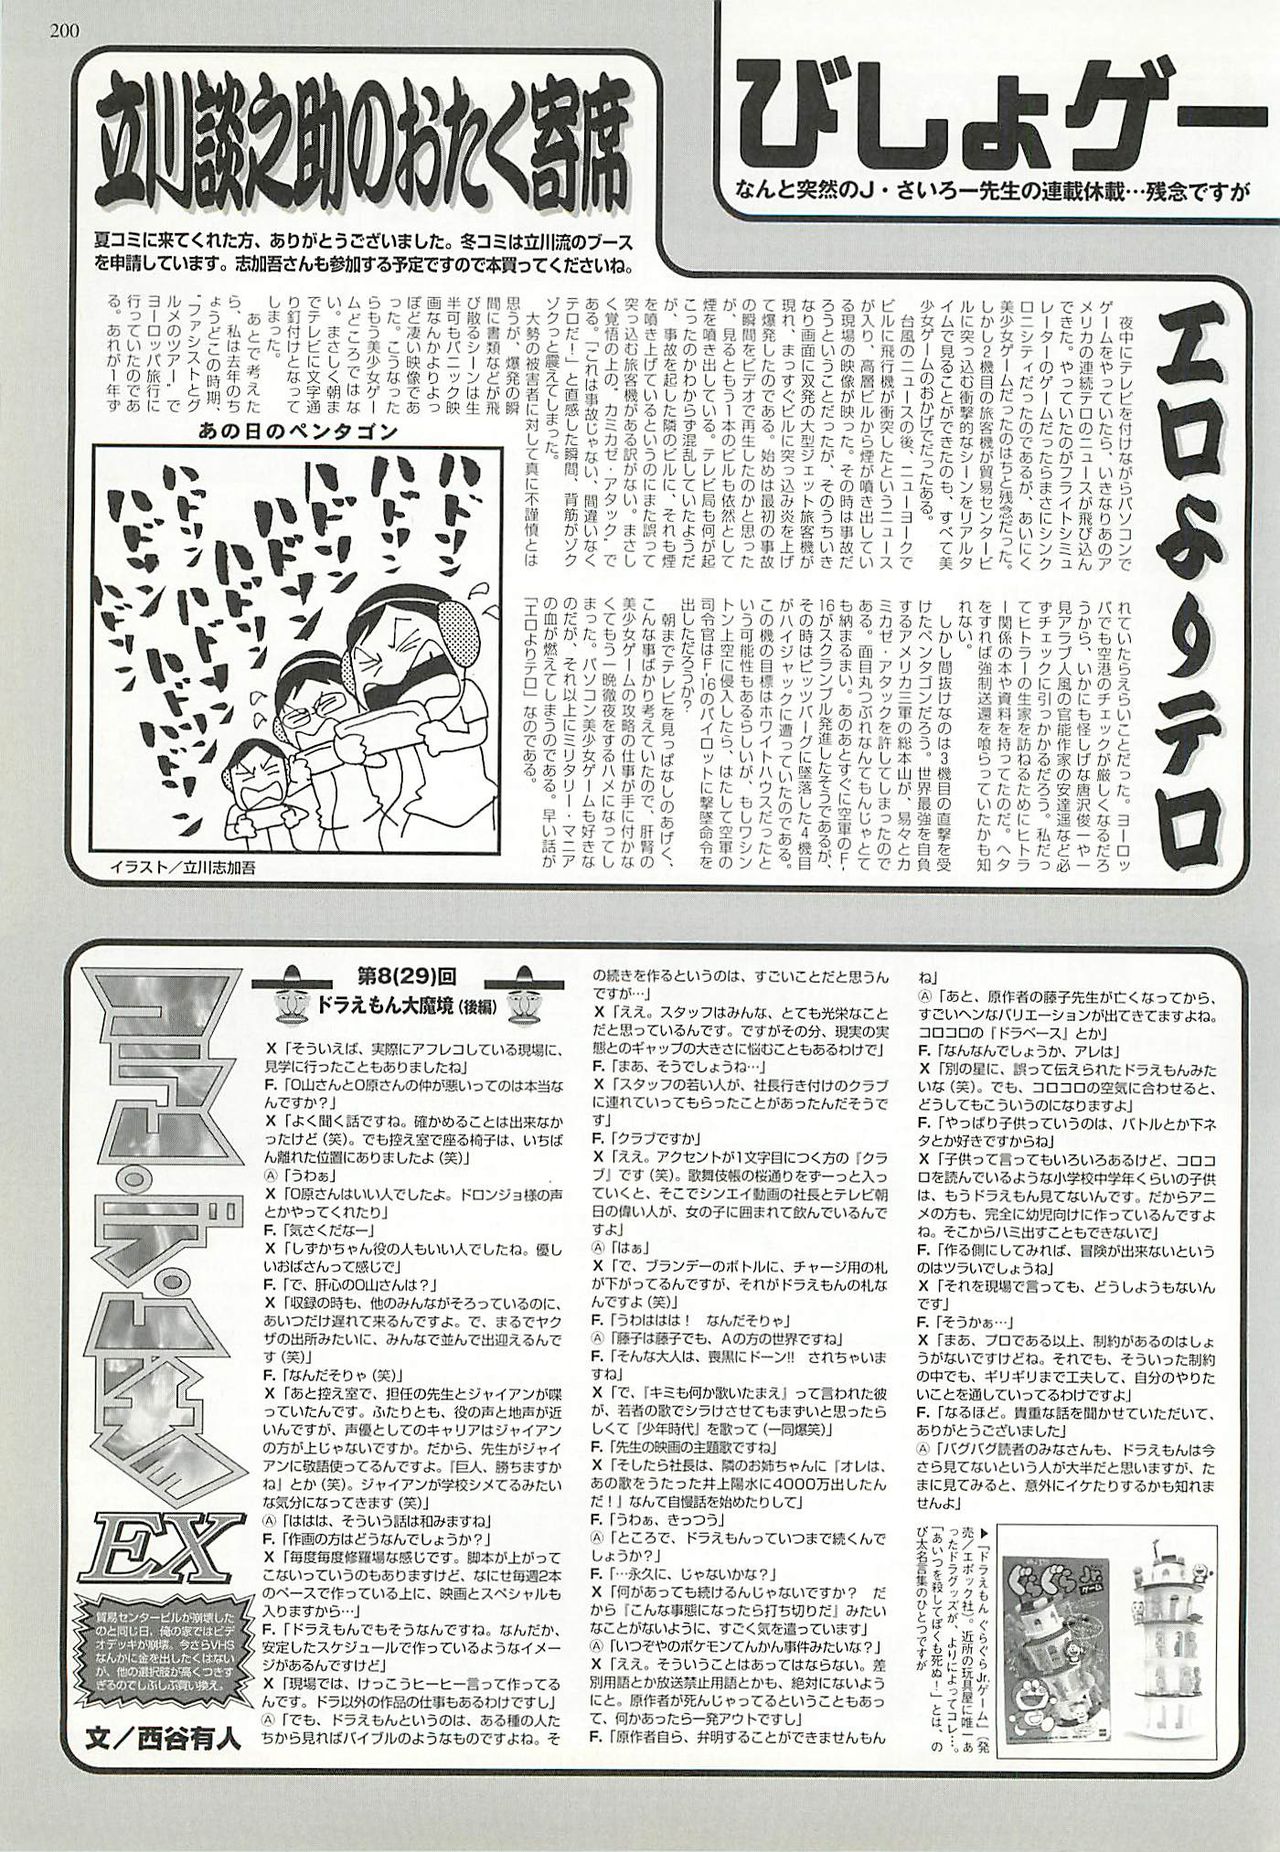 200
びしょゲー
なんと突然のJ・さいろー先生の連載休載…残念ですが
立川談之助のおたく寄席
夏コミに来てくれた方、ありがとうございました。冬コミは立川流のブース
を申請しています。志加吾さんも参加する予定ですので本買ってくださいね。
エロよりテロ
夜中にテレビを付けながらパソコンで
ゲームをやっていたら、いきなりあのア
メリカの連続テロのニュースが飛び込ん
できた。やっていたのがフライトシミュ
レーターのゲームだったらまさにシンク
ロニシティだったのであるが、あいにく
美少女ゲームだったのはちと残念だった。
しかし2機目の旅客機が貿易センタービ
ルに突っ込む衝撃的なシーンをリアルタ
イムで見ることができたのも、すべて美
少女ゲームのおかげでだったある。
台風のニュースの後、ニューヨークで
ビルに飛行機が衝突したというニュース
が入り、高層ビルから煙が噴き出してい
る現場の映像が映った。その時は事故だ
ろうということだったが、そのうちいき
なり画面に双発の大型ジェット旅客機が
現れ、まっすぐビルに突っ込み炎を上げ
て爆発したのである。始めは最初の事故
の瞬間をビデオで再生したのかと思った
が、見るともう1本のビルも依然として
煙を噴き出している。テレビ局も何が起
こったのかわからず混乱していたようだ
が、事故を起した隣のビルに、それも煙
を噴き上げているというのにまた誤って
突っ込む旅客機がある訳がない。まさし
く覚悟の上の、カミカゼ・アタック”で
ある。「これは事故じゃない、間違いなく
テロだ！」と直感した瞬間、背筋がゾク
ゾクっと震えてしまった。
大勢の被害者に対して真に不謹慎とは
思うが、爆発の瞬
間に書類などが飛
び散るシーンは生
半可もパニック映
画なんかよりよっ
ぽど凄い映像であ
った。こうなった
らもう美少女ゲー
ムどころではな
い。まさしく朝ま
でテレビに文字通
り釘付けとなって
しまった。
あとで考えた
ら、私は去年のち
ょうどこの時期、
“ファシストとグ
ルメのツアー”で
ヨーロッパ旅行に
行っていたのであ
る。あれが1年ず
れていたらえらいことだった。ヨーロッ
パでも空港のチェックが厳しくなるだろ
うから、いかにも怪しげな唐沢俊一や一
見アラブ人風の官能作家の安達瑶など必
ずチェックに引っかかるだろう。私だっ
てヒトラーの生家を訪ねるためにヒトラ
ー関係の本や資料を持ってたのだ。ヘタ
をすれば強制送還を喰らっていたかも知
れない。
しかし間抜けなのは3機目の直撃を受
けたペンタゴンだろう。世界最強を自負
するアメリカ三軍の総本山が、易々とカ
ミカゼ・アタックを許してしまったので
ある。面目丸つぶれなんてもんじゃとて
も納まるまい。あのあとすぐに空軍のF-
16がスクランブル発進したそうであるが、
その時はピッツバーグに墜落した4機目
がハイジャックに遭っていたのである。
この機の目標はホワイトハウスだったと
いう可能性もあるらしいが、もしワシン
トン上空に侵入したら、はたして空軍の
司令官はF-16のパイロットに撃墜命令を
出しただろうか？
朝までテレビを見っぱなしのあげく、
こんな事ばかり考えていたので、肝腎の
美少女ゲームの攻略の仕事が手に付かな
くてもう一晩徹夜をするハメになってし
まった。パソコン美少女ゲームも好きな
のだが、それ以上にミリタリー・マニア
の血が燃えてしまうのである。早い話が
「エロよりテロ」なのである。
あの日のペンタゴン
ハドソン
ハドソン
ハドソン
ハドソン
ハドソン
ハドソン
ハドソン
イラスト／立川志加吾
EX
貿易センタービルが崩壊した
のと同じ日、俺の家ではビデ
オデッキが崩壊。今さらVHS
なんかに金を出したくはない
が、他の選択肢が高くつきす
ぎるのでしぶしぶ買い換え。
文／西谷有人
第8(29)回
ドラえもん大魔境（後編）
X「そういえば、実際にアフレコしている現場に、
見学に行ったこともありましたね」
F.「O山さんとO原さんの仲が悪いってのは本当な
んですか？」
X「よく聞く話ですね。確かめることは出来なか
ったけど（笑）。でも控え室で座る椅子は、いちば
ん離れた位置にありましたよ（笑）」
Ⓐ「うわぁ」
X「O原さんはいい人でしたよ。ドロンジョ様の声
とかやってくれたり」
F.「気さくだなー」
X「しずかちゃん役の人もいい人でしたね。優し
いおばさんって感じで」
F.「で、肝心のO山さんは？」
X「収録の時も、他のみんながそろっているのに、
あいつだけ遅れて来るんですよ。で、まるでヤク
ザの出所みたいに、みんなで並んで出迎えるんで
す（笑）」
F.「なんだそりゃ（笑）」
X「あと控え室で、担任の先生とジャイアンが喋
っていたんです。ふたりとも、役の声と地声が近
いんですが、声優としてのキャリアはジャイアン
の方が上じゃないですか。だから、先生がジャイ
アンに敬語使ってるんですよ。『巨人、勝ちますか
ね』とか（笑）。ジャイアンが学校シメてるみたい
な気分になってきます（笑）」
Ⓐ「ははは、そういう話は和みますね」
F.「作画の方はどうなんでしょうか？」
X「毎度毎度修羅場な感じです。脚本が上がって
こないっていうのもありますけど、なにせ毎週2本
のペースで作っている上に、映画とスペシャルも
入りますから…」
F.「ドラえもんでもそうなんですね。なんだか、
安定したスケジュールで作っているようなイメー
ジがあるんですけど」
X「現場では、けっこうヒーヒー言って作ってる
んです。ドラ以外の作品の仕事もあるわけですし」
Ⓐ「でも、ドラえもんというのは、ある種の人た
ちから見ればバイブルのようなものですよね。そ
の続きを作るというのは、すごいことだと思うん
ですが…」
X「ええ。スタッフはみんな、とても光栄なこと
だと思っているんです。ですがその分、現実の実
態とのギャップの大きさに悩むこともあるわけで」
F.「まあ、そうでしょうね…」
X「スタッフの若い人が、社長行き付けのクラブ
に連れていってもらったことがあったんだそうで
す」
F.「クラブですか」
X「ええ。アクセントが1文字目につく方の『クラ
ブ』です（笑）。歌舞伎帳の桜通りをずーっと入っ
ていくと、そこでシンエイ動画の社長とテレビ朝
日の偉い人が、女の子に囲まれて飲んでいるんで
すよ」
Ⓐ「はぁ」
X「で、ブランデーのボトルに、チャージ用の札
が下がってるんですが、それがドラえもんの札な
んですよ（笑）」
F.「うわははは！　なんだそりゃ」
Ⓐ「藤子は藤子でも、Aの方の世界ですね」
F.「そんな大人は、喪黒にドーン!!　されちゃいま
すね」
X「で、『キミも何か歌いたまえ』って言われた彼
が、若者の歌でシラけさせてもまずいと思ったら
しくて『少年時代』を歌って（一同爆笑）」
F.「先生の映画の主題歌ですね」
X「そしたら社長は、隣のお姉ちゃんに『オレは、
あの歌をうたった井上陽水に4000万出したん
だ！』なんて自慢話を始めたりして」
F.「うわぁ、きっつう」
Ⓐ「ところで、ドラえもんっていつまで続くんで
しょうか？」
F.「…永久に、じゃないかな？」
X「何があっても続けるんじゃないですか？　だ
から『こんな事態になったら打ち切りだ』みたい
なことがないように、すごく気を遣っています」
Ⓐ「いつぞやのポケモンてんかん事件みたいな？」
X「ええ。そういうことはあってはならない。差
別用語とか放送禁止用語とかも、絶対にないよう
にと。原作者が死んじゃってるということもあっ
て、何かあったら一発アウトですし」
F.「原作者自ら、弁明することができませんもん
ね」
Ⓐ「あと、原作者の藤子先生が亡くなってから、
すごいヘンなバリエーションが出てきてますよね。
コロコロの『ドラベース』とか」
F.「なんなんでしょうか、アレは」
X「別の星に、誤って伝えられたドラえもんみた
いな（笑）。でも、コロコロの空気に合わせると、
どうしてもこういうのになりますよ」
F.「やっぱり子供っていうのは、バトルとか下ネ
タとか好きですからね」
X「子供って言ってもいろいろあるけど、コロコ
ロを読んでいるような小学校中学年くらいの子供
は、もうドラえもん見てないんです。だからアニ
メの方も、完全に幼児向けに作っているんですよ
ね。そこからハミ出すこともできないで」
F.「作る側にしてみれば、冒険が出来ないという
のはツラいでしょうね」
X「それを現場で言っても、どうしようもないん
です」
F.「そうかぁ…」
X「まあ、プロである以上、制約があるのはしょ
うがないですけどね。それでも、そういった制約
の中でも、ギリギリまで工夫して、自分のやりた
いことを通していってるわけですよ」
F.「なるほど。貴重な話を聞かせていただいて、
ありがとうございました」
Ⓐ「バグバグ読者のみなさんも、ドラえもんは今
さら見てないという人が大半だと思いますが、た
まに見てみると、意外にイケたりするかも知れま
せんよ」
▶「ドラえもん ぐらぐらJr.ゲーム」（発
売／エポック社）。近所の玩具屋に唯一あ
ったドラグッズが、よりによってコレ…。
「あいつを殺してぼくも死ぬ！」とは、の
び太名言集のひとつですが
ぐらぐら
Jr.
ゲーム